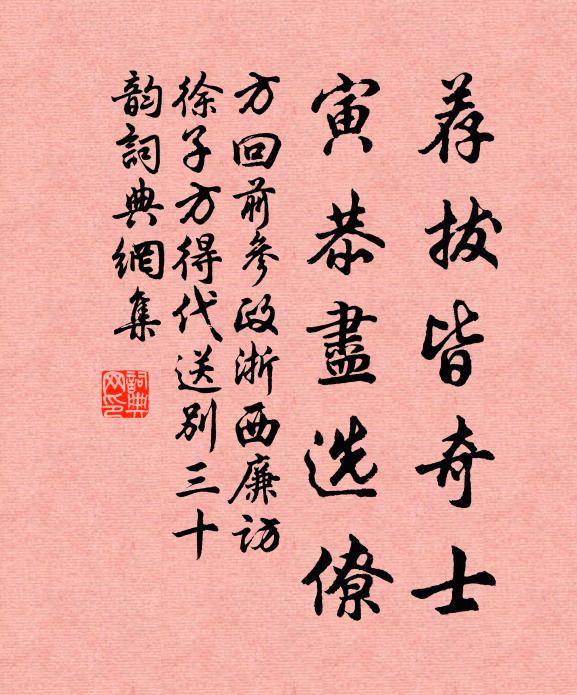 荐拔皆奇士
寅恭盡选僚
方回前参政浙西廉访
徐子方得代送别三十
韵詞典網集
詞典网印